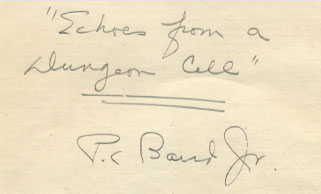 "Echoes from a
Dungeon Cell"
P.C Baird Jr.